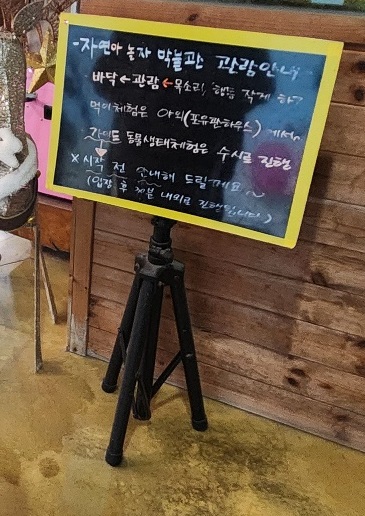 -자연아 놀자 박물관 관람안내-
· 바닥←관람←목소리, 행동 작게 하기
먹이체험은 야외(포유판하우스)에서
· 가이드 동물생태체험은 수시로 진행
※ 시작 전 안내해 드릴께요~
(입장 후 30분 내외로 진행됩니다)